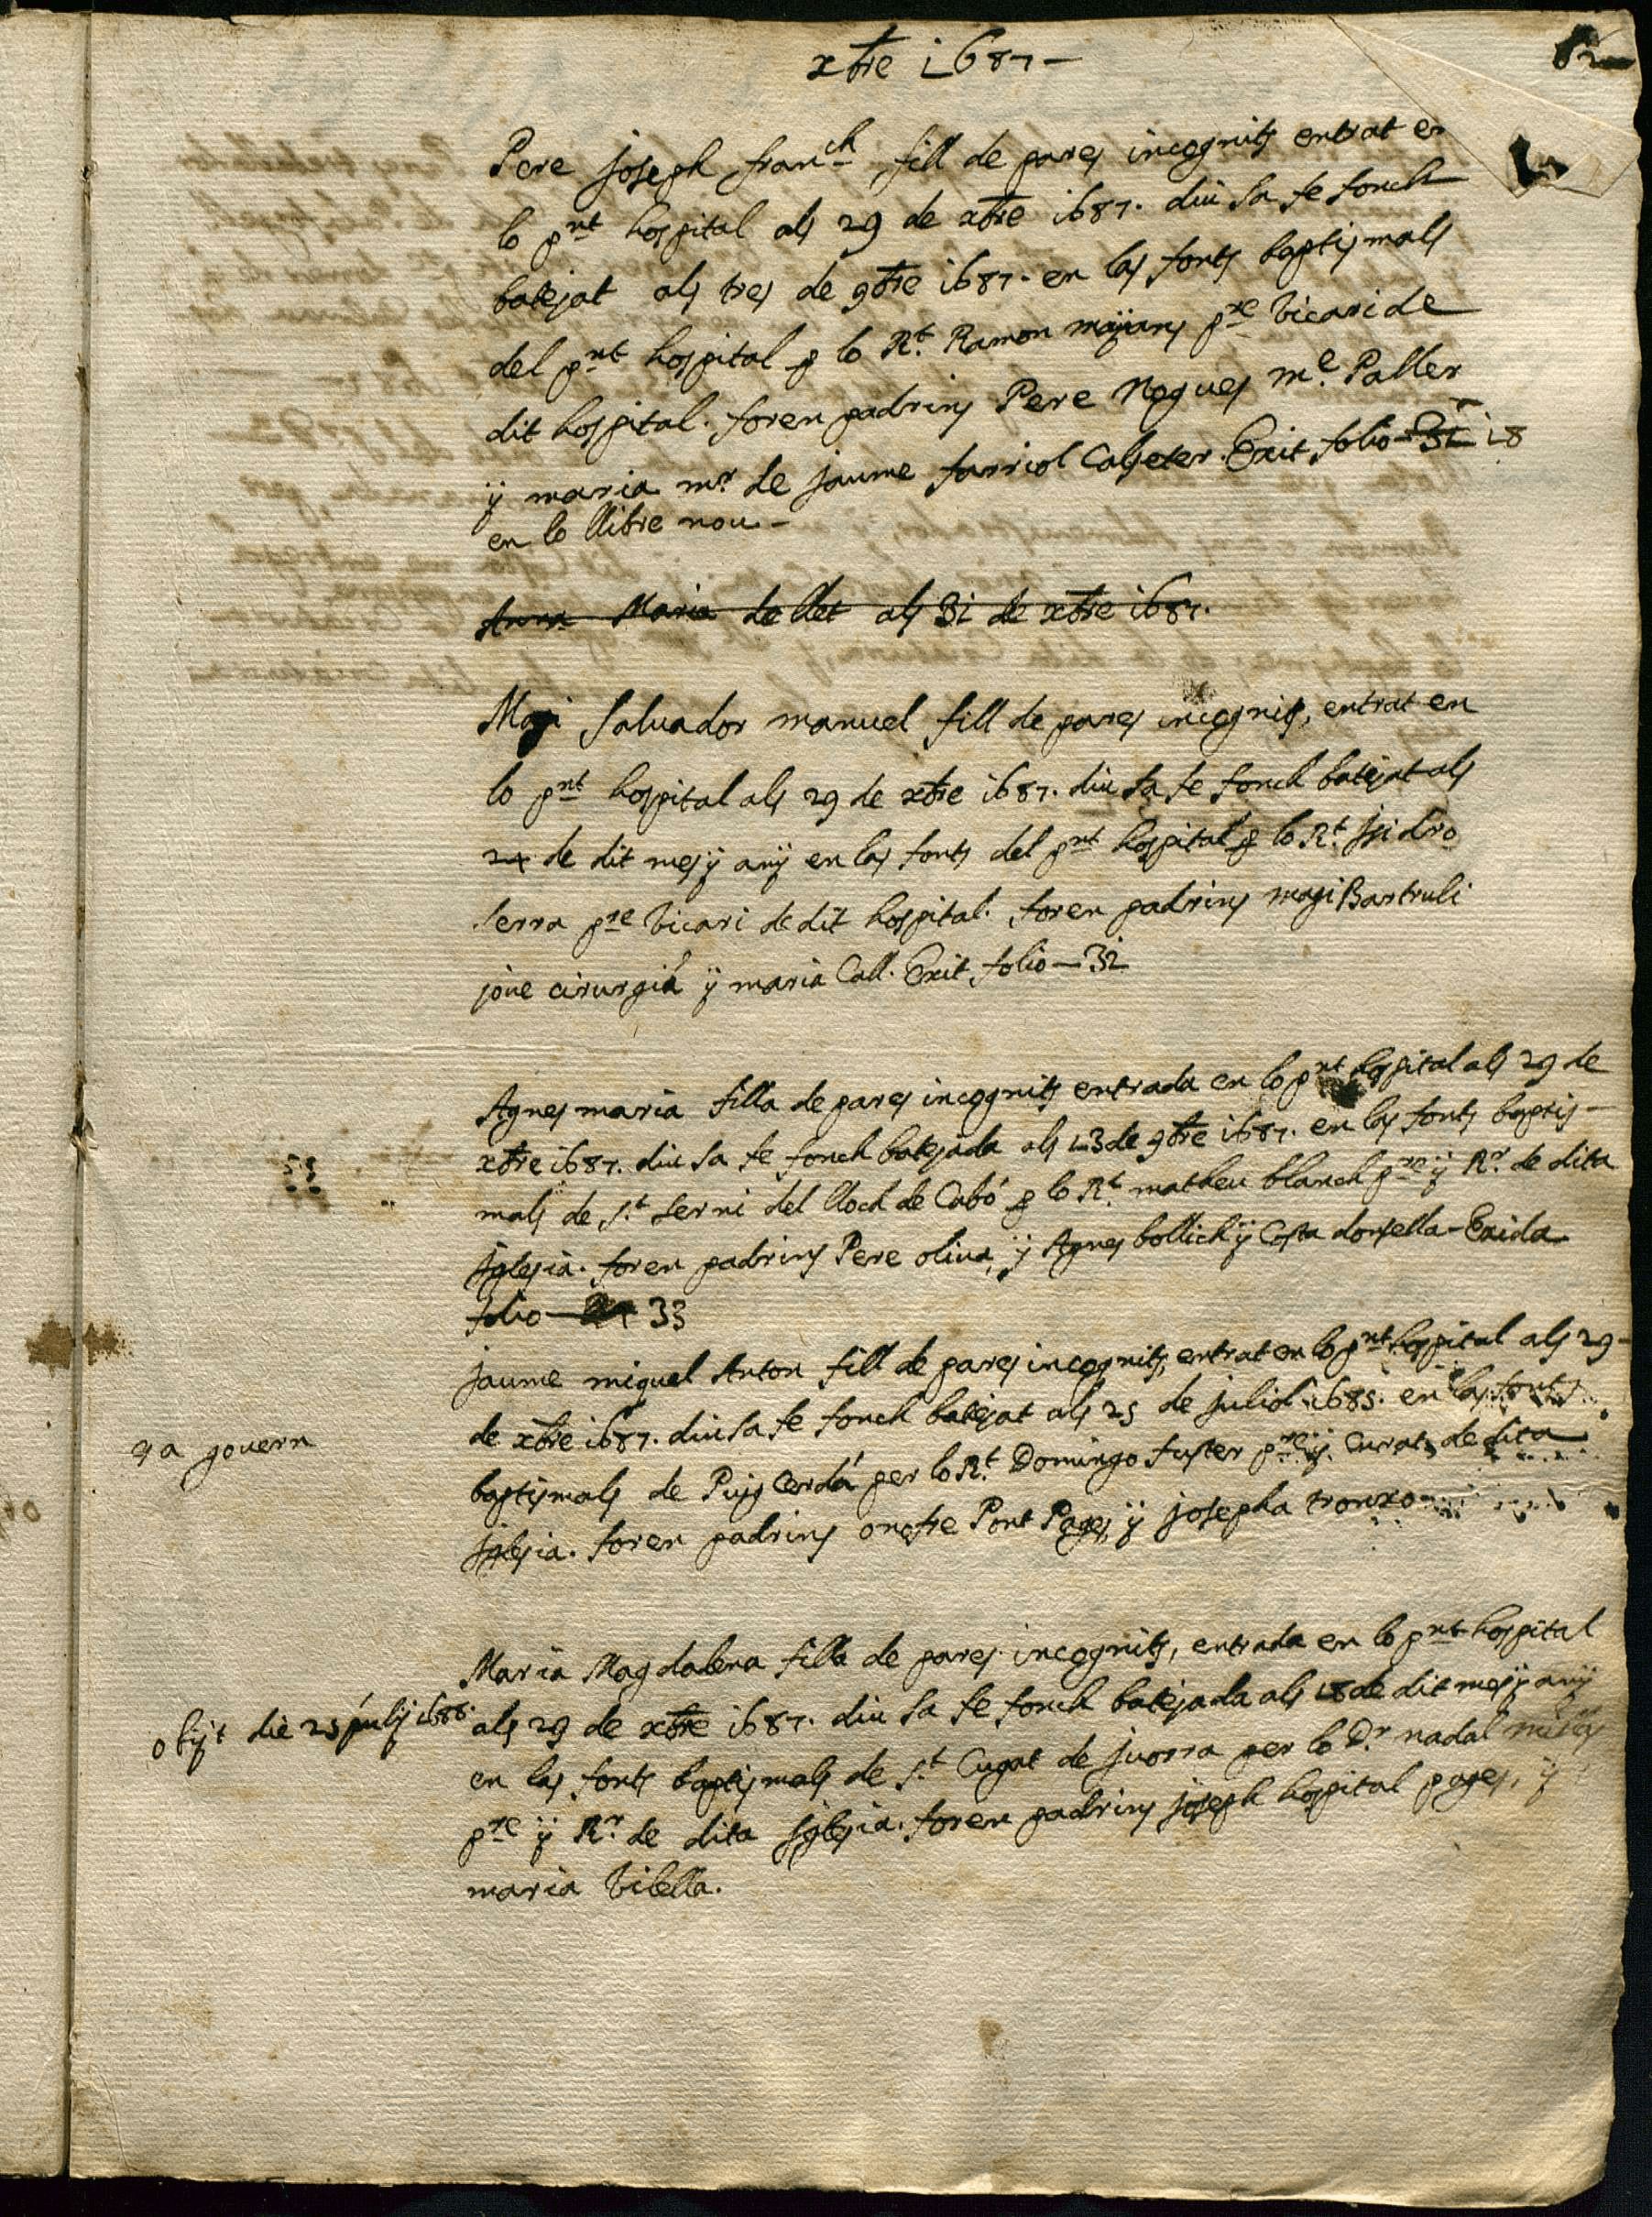 xbre 1687 -
Pere Joseph franch fill de pares incognits entrat en
lo pnt hospital als 29 de xbre 1687. diu sa fe fonch
batejat als tres de 9bre 1687. en las fonts baptismals
del pnt hospital p lo Rt. Ramon mijans pre Vicari de
dit hospital. foren padrins Pere Nogues me. Paller
ÿ maria mr. de jaume farriol Calseter. Exit folio — 18
en lo llibre nou -
Anna Maria de llet als 31 de xbre 1687.
Magi Salvador manuel fill de pares incognits, entrat en
lo pnt hospital als 29 de xbre 1687. diu sa fe fonch batejat als
24 de dit mes ÿ anÿ en las fonts del pnt hospital p lo Rt. Isidro
Serra pre Vicari de dit hospital. foren padrins magi Bartruli
jove cirurgià ÿ maria Call. Exit folio — 32
Agnes maria filla de pares incognits entrada en lo pnt hospital als 29 de
xbre 1687. diu sa fe fonch batejada als 13 de 9bre 1687. en las fonts baptis-
mals de St. Serni del lloch de Cabó p lo Rt. matheu blanch pre ÿ Rr. de dita
Iglesia. foren padrins Pere oliva, ÿ Agnes bollich ÿ Costa donsella - Exida
folio — 33
jaume miquel Anton fill de pares incognits, entrat en lo pnt hospital als 29
de xbre 1687. diu sa fe fonch batejat als 25 de juliol 1685. en las fonts
a govern
baptismals de Puig Cerdá per lo Rt. Domingo fuster pre ÿ Curat de dita
Iglesia. foren padrins onofre Pont Pages, ÿ josepha tronxo
Maria Magdalena filla de pares incognits, entrada en lo pnt hospital
obijt die 25 julij 1688.
als 29 de xbre 1687. diu sa fe fonch batejada als 18 de dit mes ÿ anÿ
en las fonts baptismals de St. Cugat de juorra per lo Dr. nadal
pre ÿ Rr. de dita Iglesia. foren padrins joseph hospital pages, ÿ
maria Vilella.